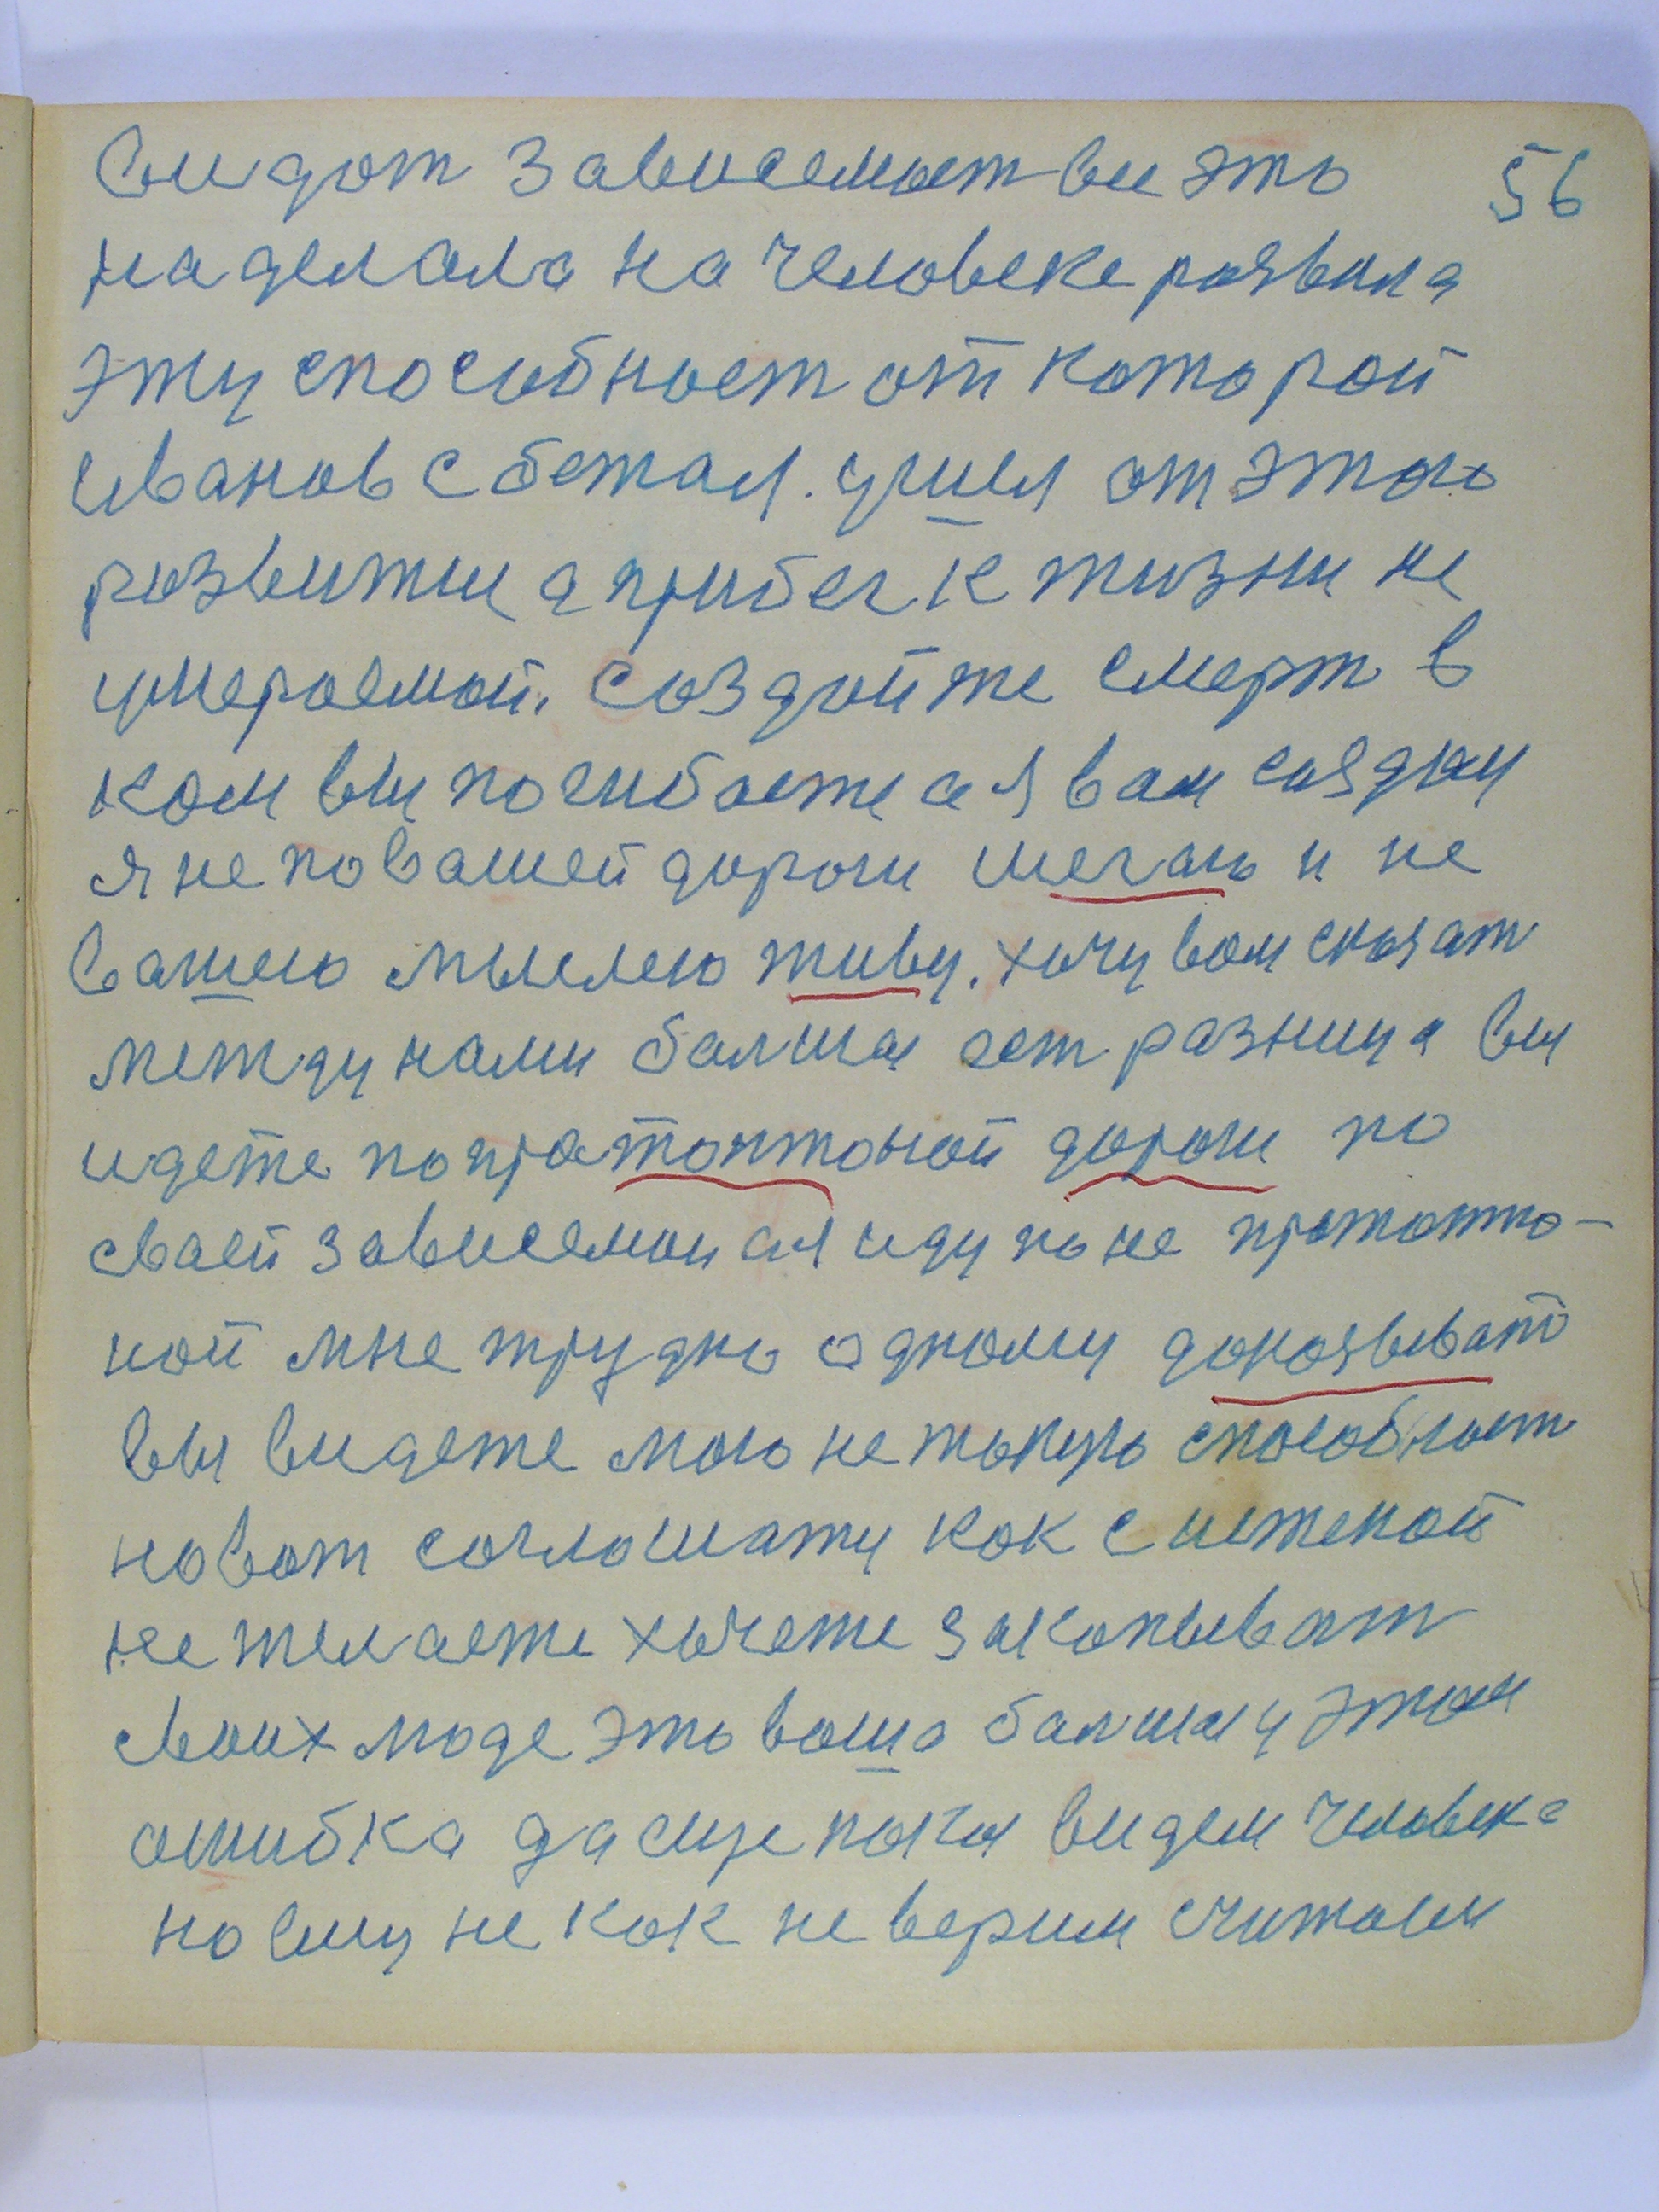 видот зависемост вие это 56
наделала на человеке розвила
эту способност от которой
иванов сбежал. ушел от этого
розвитии а прибег к жизни не
умераемой. создойте смерт в
ком вы погибаете а я вам создам
я не по вашей дороги шегаю и не
вашею мыслею живу. хочу вам сказат
между нами балшая ест разница вы
идете по пратоптоной дороги по
сваей зависемои а я иду по не пратопто-
ной мне трудно одному доказыват
вы видете мою не токую способност
но вот соглошату кок с
не желаете хочете закопыват
своих люде это ваша балшая у этом
ошибка да еще поки видем человека
но ему не кок не верим считоем